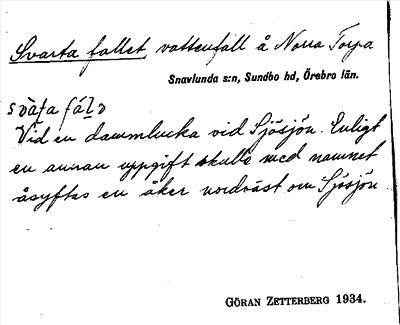 Svarta fallet vattenfall å Norra Torpa
Snavlunda s:n, Sundbo hd, Örebro län.
Vid en dammlucka vid Sjösjön. Enligt
en annan uppgift skulle med namnet
åsyftas en åker nordväst om Sjösjön
GÖRAN ZETTERBERG 1934.